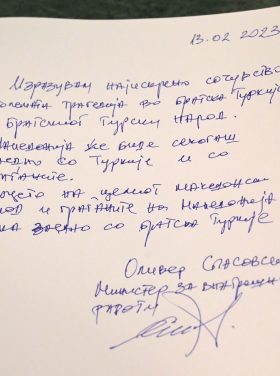 13.02.2023
Изразувам најискрено сочувство
трагедија во братска Туркије
братскиот Турски народ.
Македонија ќе биде секогаш
со Туркије и со
на целиот македонски
и граѓаните на Македонија
заедно со братска Туркије
Оливер Спасовски
Министер за внатрешни
работи